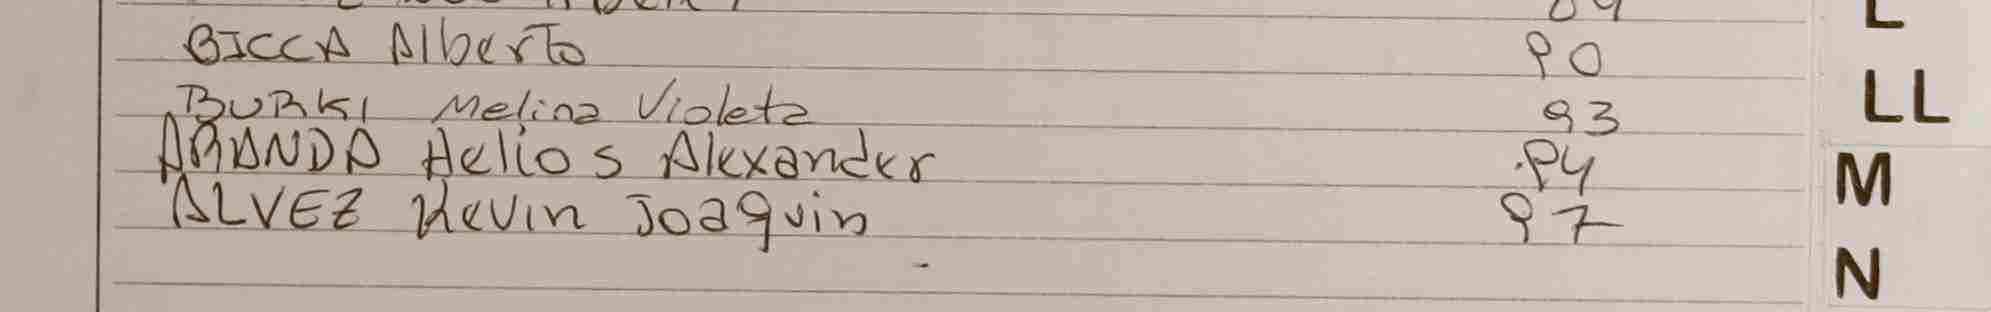 BICCA Alberto 90
BURKI Melina Violeta 93
ARANDA Helios Alexander 94
ALVEZ Kevin Joaquin 97
L
LL
M
N